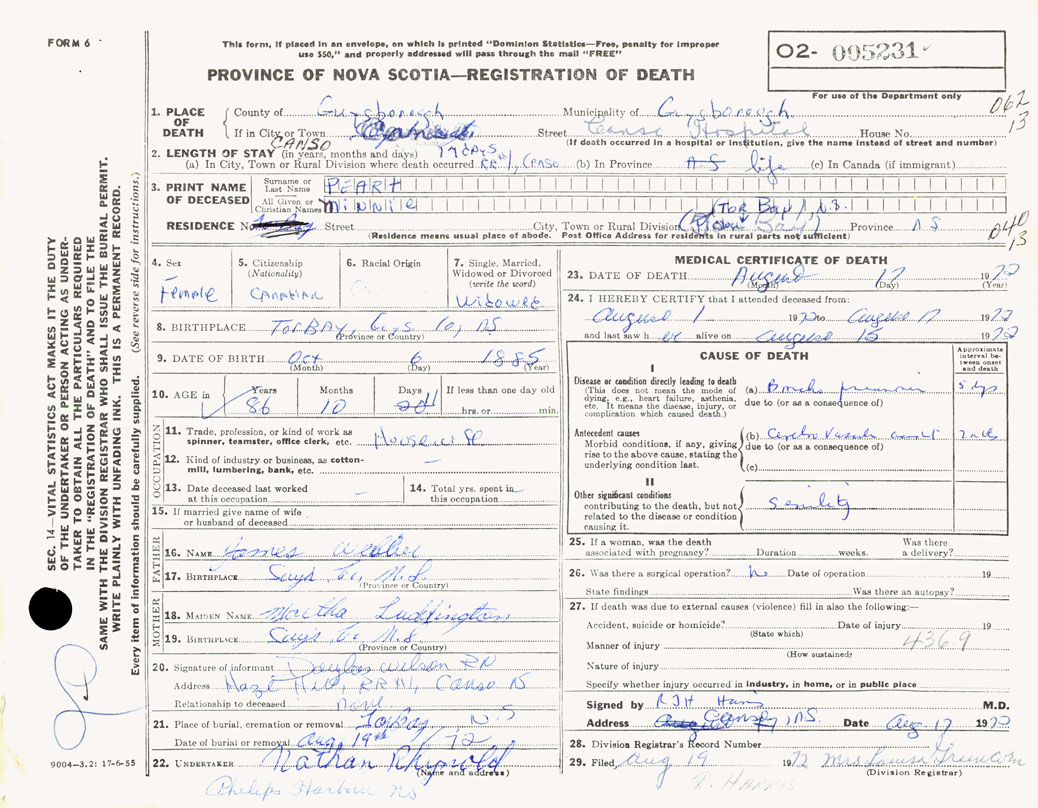 FORM 6
This form, if placed in an envelope, on which is printed "Dominion Statistics—Free, penalty for improper
use $50," and properly addressed will pass through the mail "FREE"
PROVINCE OF NOVA SCOTIA—REGISTRATION OF DEATH
02- 005231
For use of the Department only
062
13
1. PLACE OF DEATH
County of Guysborough Municipality of Guysborough
If in City or Town CANSO Street Canso Hospital House No.
(If death occurred in a hospital or institution, give the name instead of street and number)
2. LENGTH OF STAY (in years, months and days) 17 days
(a) In City, Town or Rural Division where death occurred RR#1, CANSO (b) In Province life (c) In Canada (if immigrant)
3. PRINT NAME OF DECEASED
Surname or Last Name PEART
All Given or Christian Names MINNIE
(TOR BAY) N.S.
RESIDENCE No. Street City, Town or Rural Division Province NS
(Residence means usual place of abode. Post Office Address for residents in rural parts not sufficient)
040
13
4. Sex Female
5. Citizenship (Nationality) CANADIAN
6. Racial Origin
7. Single, Married, Widowed or Divorced (write the word) Widowed
8. BIRTHPLACE TOR BAY, Guys Co, NS
(Province or Country)
9. DATE OF BIRTH Oct 6 1885
(Month) (Day) (Year)
10. AGE in Years 86 Months 10 Days If less than one day old hrs. or min.
OCCUPATION
11. Trade, profession, or kind of work as spinner, teamster, office clerk, etc. Housewife
12. Kind of industry or business, as cotton-mill, lumbering, bank, etc. —
13. Date deceased last worked at this occupation —
14. Total yrs. spent in this occupation —
15. If married give name of wife or husband of deceased
FATHER
16. NAME James Webber
17. BIRTHPLACE Guys Co. N.S.
(Province or Country)
MOTHER
18. MAIDEN NAME Martha Luddington
19. BIRTHPLACE Guys Co. N.S.
(Province or Country)
20. Signature of informant Douglas Wilson RN
Address Hazel Hill, RR#1, Canso NS
Relationship to deceased none
21. Place of burial, cremation or removal Torbay N.S
Date of burial or removal Aug 19th / 72
22. UNDERTAKER Nathan
(Name and address)
Philips Harbour NS
MEDICAL CERTIFICATE OF DEATH
23. DATE OF DEATH August 17 1972
(Month) (Day) (Year)
24. I HEREBY CERTIFY that I attended deceased from:
August 1 1972 to August 17 1972
and last saw her alive on August 15 1972
CAUSE OF DEATH
Approximate interval between onset and death
I
Disease or condition directly leading to death
(This does not mean the mode of dying, e.g., heart failure, asthenia, etc. It means the disease, injury, or complication which caused death.)
(a) Broncho pneumonia 5 dys
due to (or as a consequence of)
Antecedent causes
Morbid conditions, if any, giving rise to the above cause, stating the underlying condition last.
(b) Cerebro Vascular accident
due to (or as a consequence of)
(c)
II
Other significant conditions
contributing to the death, but not related to the disease or condition causing it.
Senility
25. If a woman, was the death associated with pregnancy? Duration weeks. Was there a delivery?
26. Was there a surgical operation? No Date of operation 19
State findings Was there an autopsy?
27. If death was due to external causes (violence) fill in also the following:—
Accident, suicide or homicide? Date of injury 19
(State which)
Manner of injury 436.9
(How sustained)
Nature of injury
Specify whether injury occurred in industry, in home, or in public place
Signed by M.D.
Address Canso, NS. Date Aug. 17 1972
28. Division Registrar's Record Number
29. Filed Aug 19 1972 Mrs Louisa
(Division Registrar)
R. HARRIS
SEC. 14—VITAL STATISTICS ACT MAKES IT THE DUTY
OF THE UNDERTAKER OR PERSON ACTING AS UNDER-
TAKER TO OBTAIN ALL THE PARTICULARS REQUIRED
IN THE "REGISTRATION OF DEATH" AND TO FILE THE
SAME WITH THE DIVISION REGISTRAR WHO SHALL ISSUE THE BURIAL PERMIT.
WRITE PLAINLY WITH UNFADING INK. THIS IS A PERMANENT RECORD.
Every item of information should be carefully supplied. (See reverse side for instructions.)
9004—3.2: 17-6-55